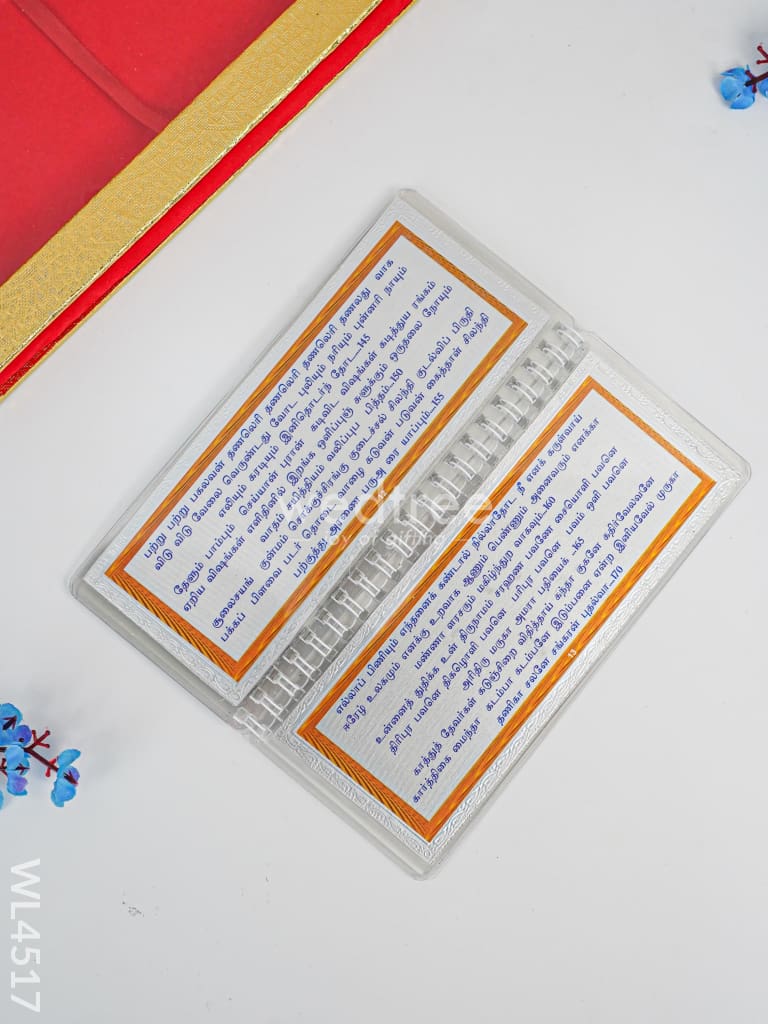 பற்று பற்று பகலவன் தணலெரி தணலெரி தணலெரி தணலது வாக
விடு விடு வேலை வெருண்டது வோட புலியும் நரியும் புன்னரி நாயும்
எலியும் கரடியும் இனிதொடர்ந் தோட_145
தேளும் பாம்பும் செய்யான் பூரான் கடிவிட விஷங்கள் கடித்துய ரங்கம்
ஏறிய விஷங்கள் எளிதினில் இறங்க ஒளிப்புஞ் சுளுக்கும் ஒருதலை நோயும்
வாதம் சயித்தியம் வலிப்புப் பித்தம்_150
சூலைசயங் குன்மம் சொக்குச்சிரங்கு குடைச்சல் சிலந்தி குடல்விப் பிருதி
பக்கப் பிளவை படர் தொடை வாழை கடுவன் படுவன் கைத்தாள் சிலந்தி
பற்குத்து அரணை பருஅ ரை யாப்பும்_155
எல்லாப் பிணியும் எந்தனைக் கண்டால் நில்லாதோட நீ எனக் கருள்வாய்
ஈரேழ் உலகமும் எனக்கு உறவாக ஆணும் பெண்ணும் அனைவரும் எனக்கா
மண்ணா ளரசரும் மகிழ்ந்துற வாகவும்_160
உன்னைத் துதிக்க உன் திருநாமம் சரஹண பவனே சையொளி பவனே
திரிபுர பவனே திகழொளி பவனே பரிபுர பவனே பவம் ஒளி பவனே
அரிதிரு மருகா அமரா பதியைக் _165
காத்துத் தேவர்கள் கடுஞ்சிறை விடுத்தாய் கந்தா குகனே கதிர்வேலவனே
கார்த்திகை மைந்தா கடம்பா கடம்பனே இடும்பனை ஏன்ற இனியவேல் முருகா
தணிகா சலனே சங்கரன் புதல்வா_170
13
wedtree
joy of gifting
WL4517